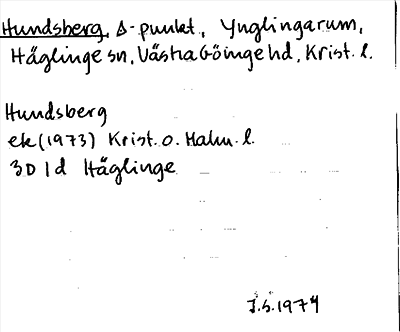 Hundsberg, Δ-punkt, Ynglingarum,
Häglinge sn, Västra Göinge hd, Krist. l.
Hundsberg
ek (1973) Krist. o. Malm. l.
3D 1d Häglinge
J.S. 1974